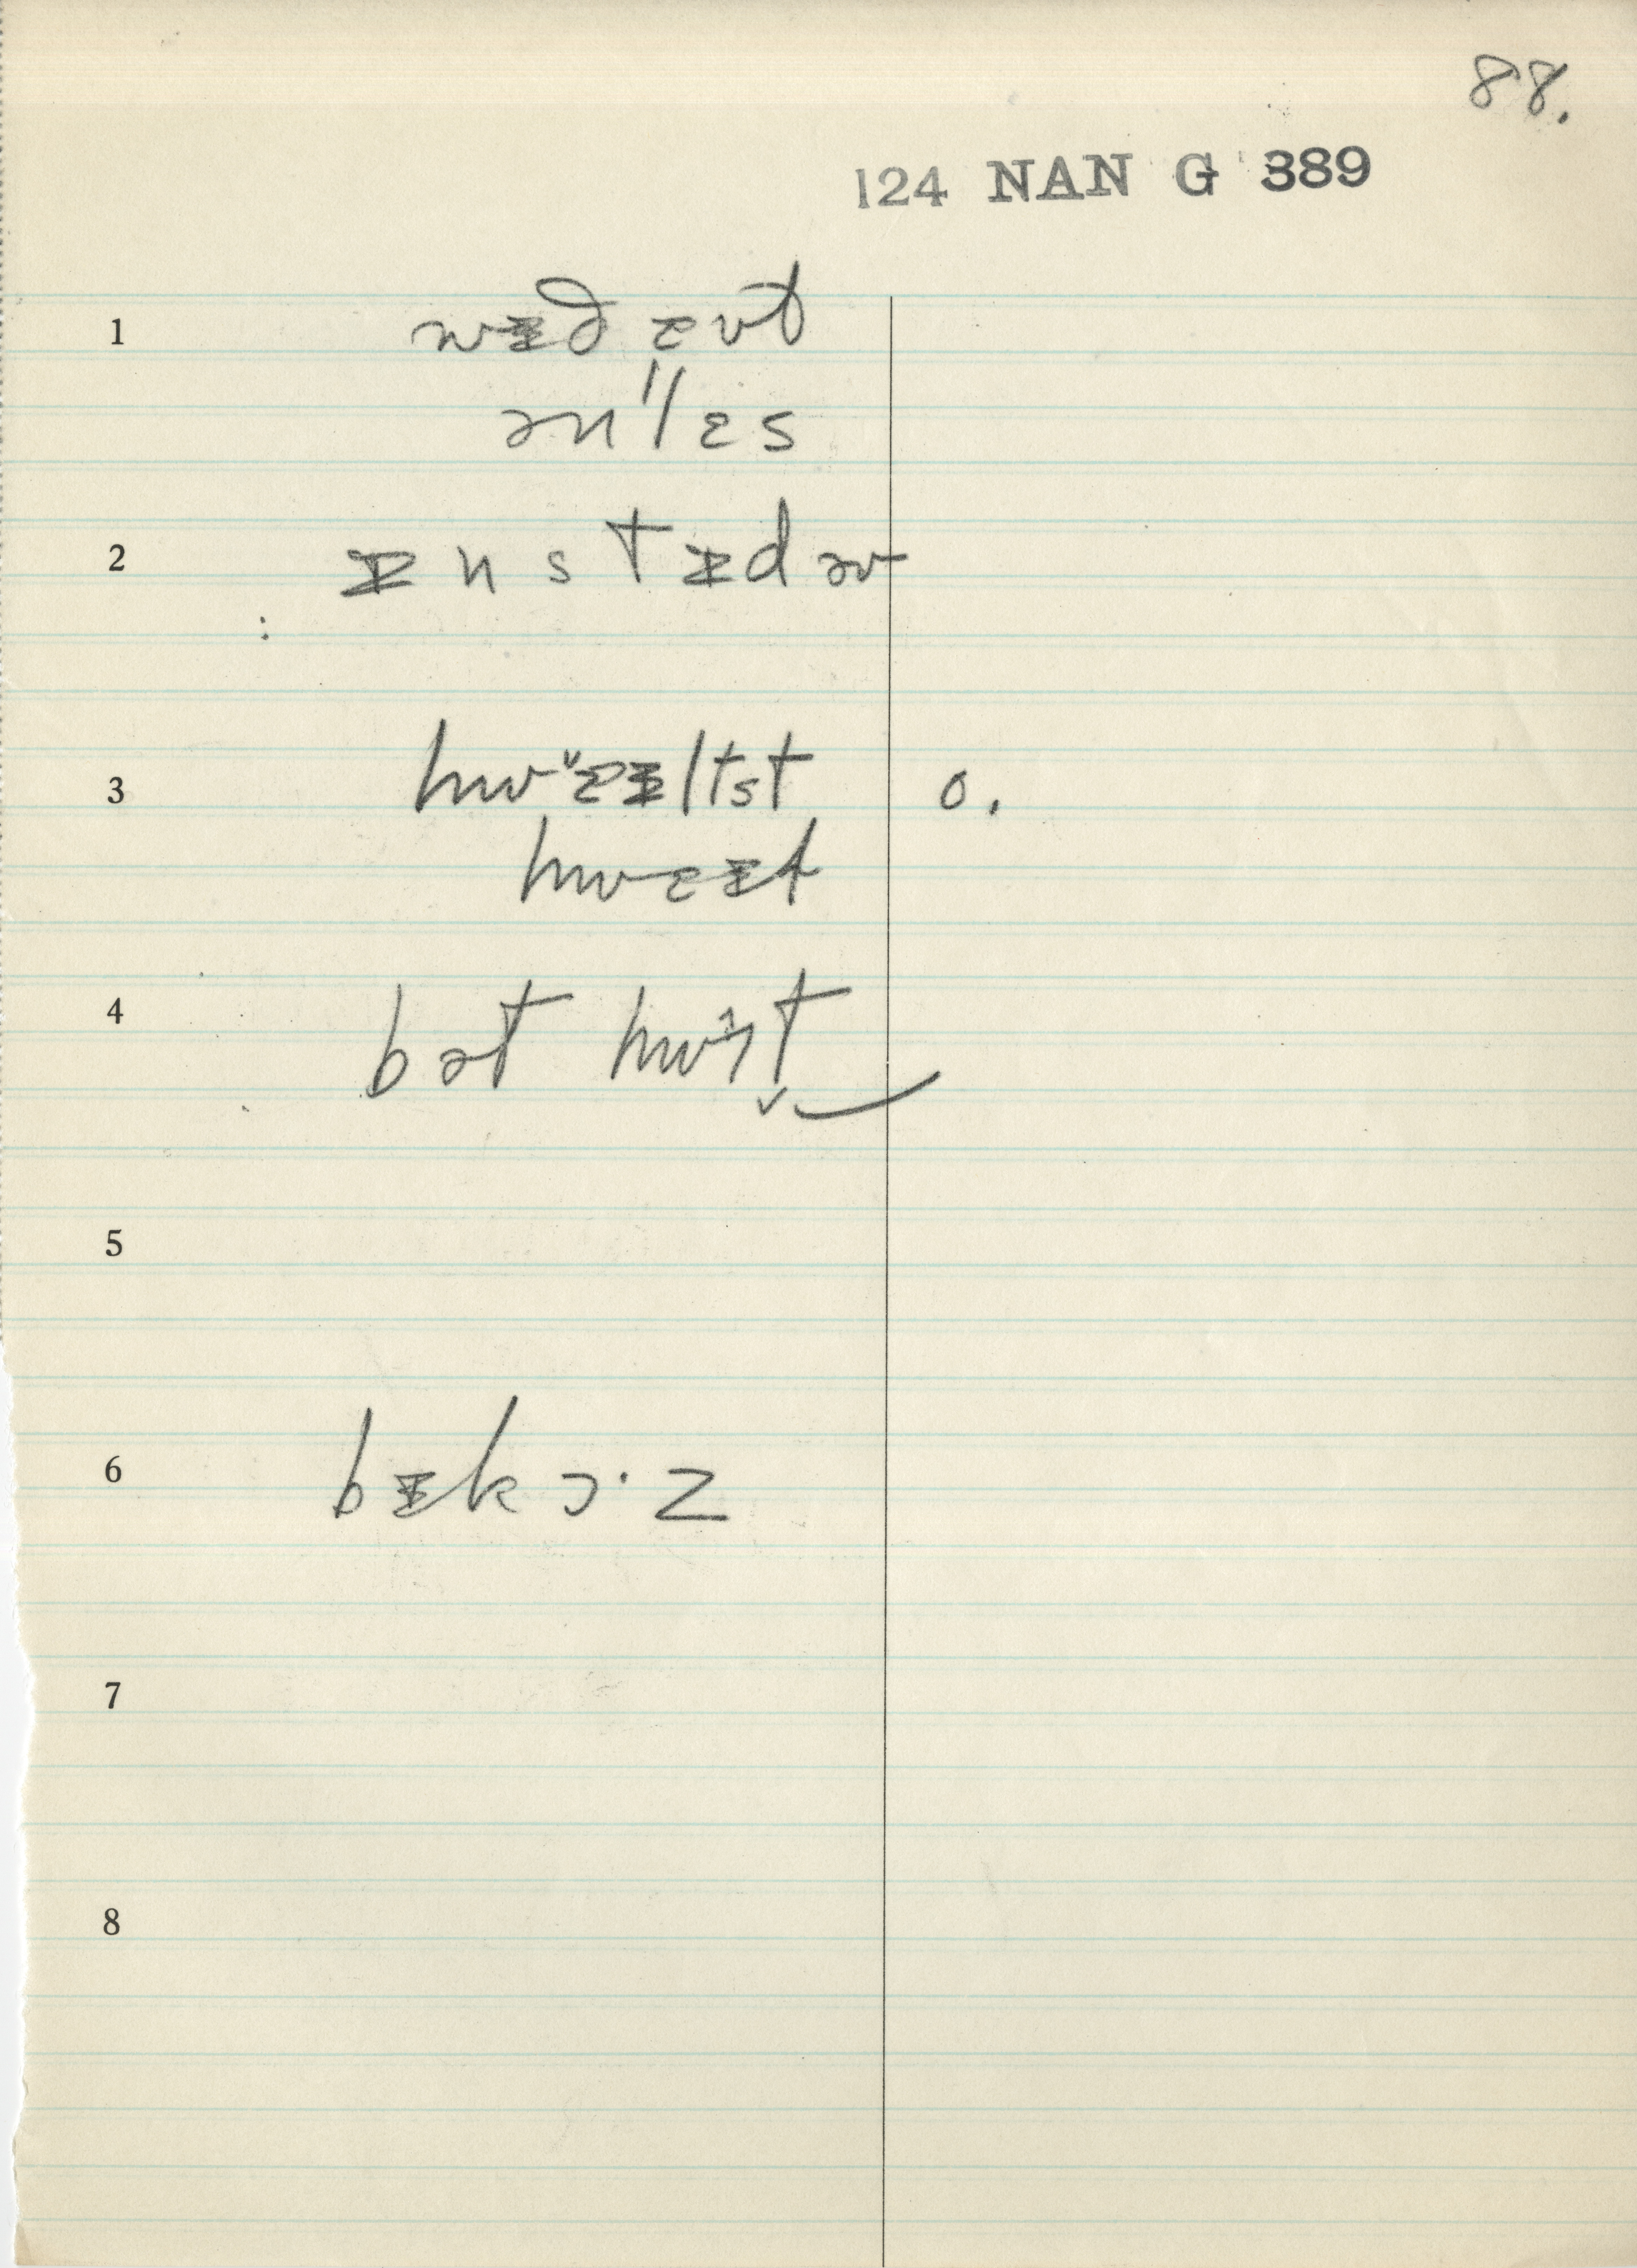 88.
124 NAN G 389
1 wɪðɛʊt
ənlɛs
2 ɪnstɪdəv
3 hwɛɪltst o.
hwɛɪt
4 bət hwɜt
5
6 bɪkɔ·z
7
8